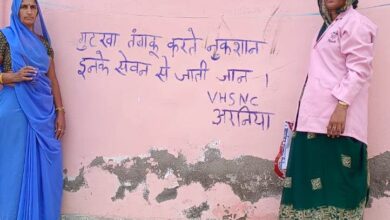 गुटखा तंबाकू करते नुकशान
इनके सेवन से जाती जान ।
VHSNC
अरनिया